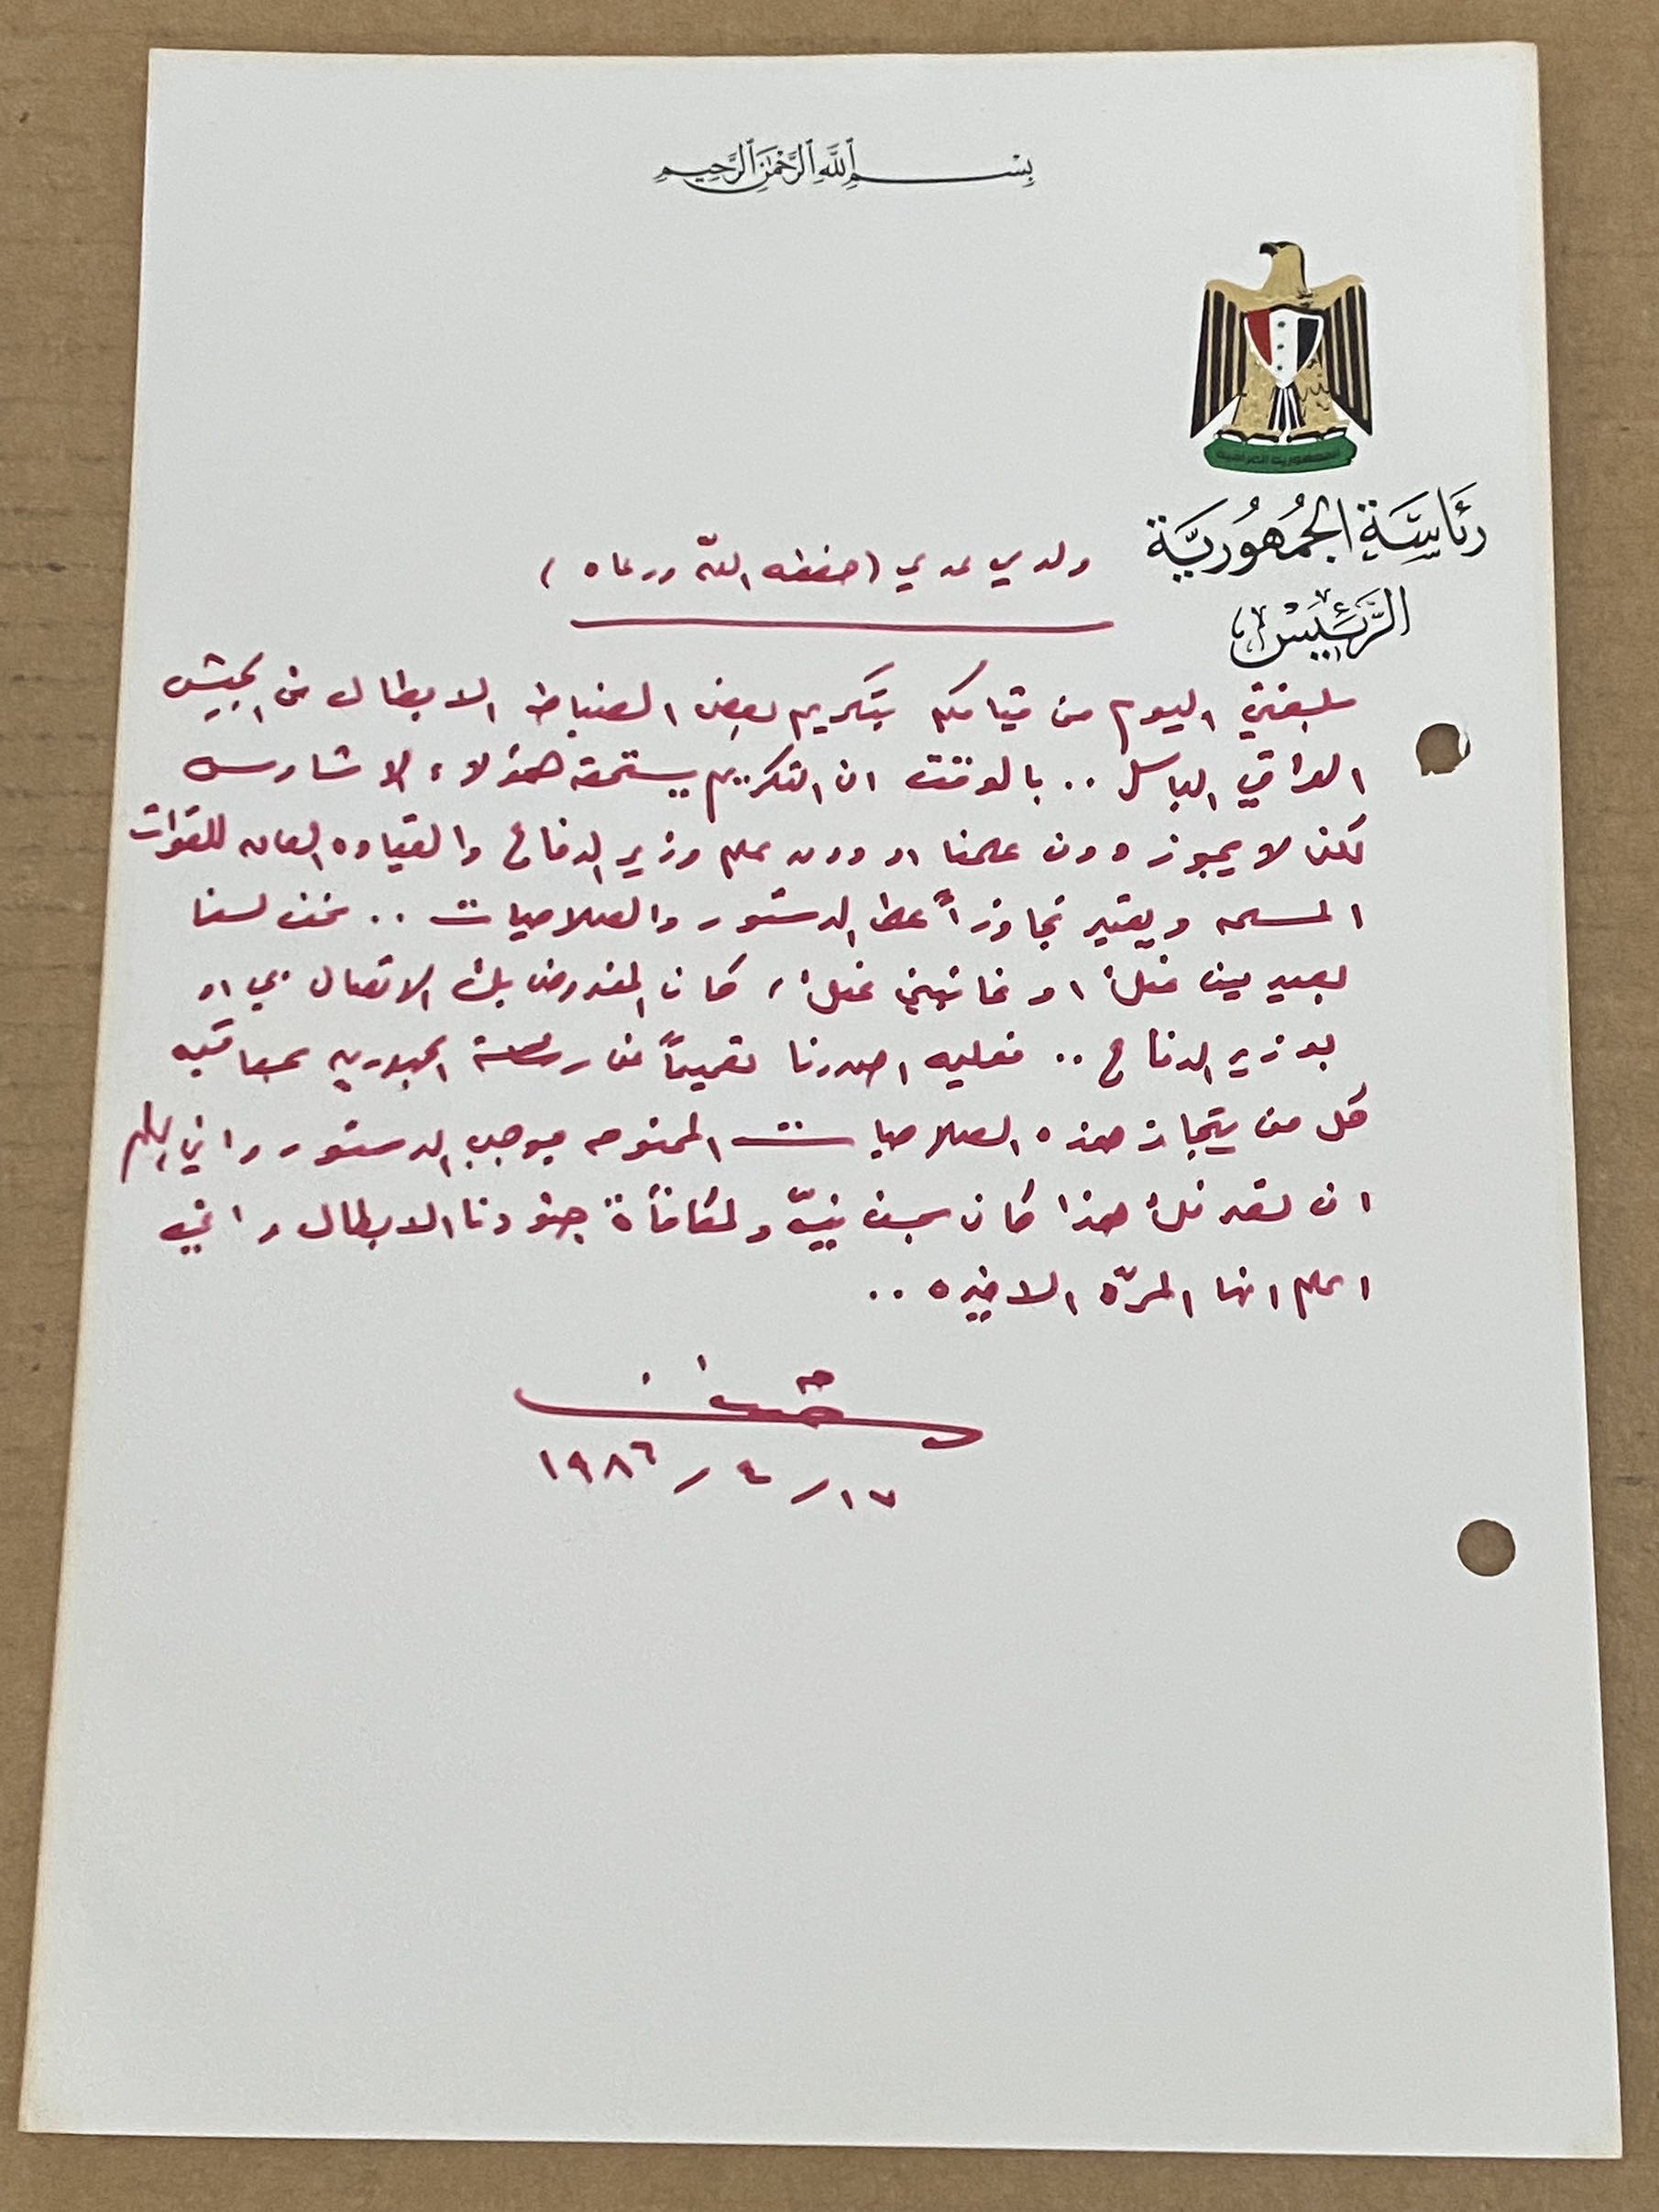 بِسْمِ ٱللَّهِ ٱلرَّحْمَٰنِ ٱلرَّحِيمِ
الجمهورية العراقية
رئَاسَة الجُمهُوريَّة
الرَّئيس
ولدي عدي (حفظه اللّه ورعاه)
بلغني اليوم من قيامكم بتكريم بعض الضباط الابطال من الجيش
العراقي الباسل .. بالوقت ان التكريم يستحقه هؤلاء الاشاوس
لكن لا يجوز دون علمنا او دون علم وزير الدفاع والقيادة العامه للقوات
المسلحه ويعتبر تجاوزاً على الدستور والصلاحيات .. نحن لسنا
بعيدين عنك او غائبين عنك، كان المفروض بك الاتصال بي او
بوزير الدفاع .. فعليه اصدرنا تعميماً من رئاسة الجمهوريه بمعاقبه
كل من يتجاوز هذه الصلاحيات الممنوحه بموجب الدستور واني اعلم
ان تصرفك هذا كان بحسن نيّه ولمكافأة جنودنا الابطال واني
اعلم انها المرّه الاخيره ..
١٧/٤/١٩٨٦